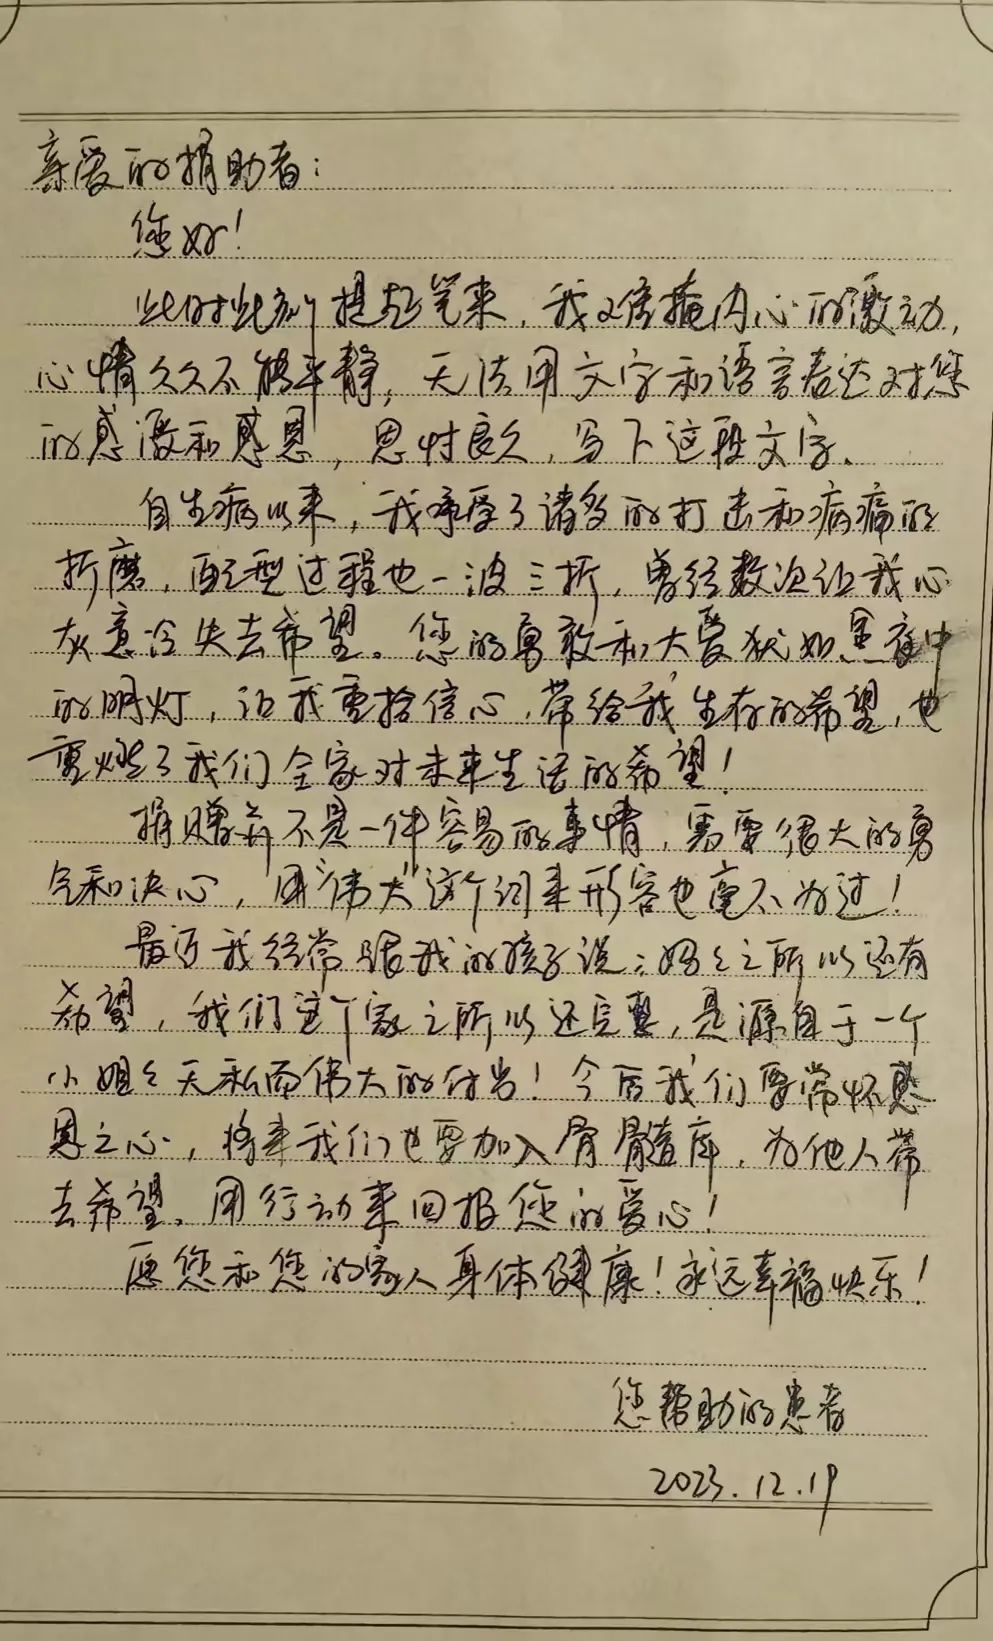 亲爱的捐助者：
您好！
此时此刻提起笔来，我难掩内心的激动，
心情久久不能平静，无法用文字和语言表达对您
的感激和感恩，思忖良久，写下这段文字。
自生病以来，我承受了诸多的打击和病痛的
折磨，配型过程也一波三折，曾经数次让我心
灰意冷失去希望。您的勇敢和大爱犹如黑夜中
的明灯，让我重拾信心，带给我生存的希望，也
重燃了我们全家对未来生活的希望！
捐赠并不是一件容易的事情，需要很大的勇
气和决心，用“伟大”这个词来形容也毫不为过！
最近我经常跟我的孩子说：妈々之所以还有
希望，我们这个家之所以还完整，是源自于一个
小姐々无私而伟大的付出！今后我们要常怀感
恩之心，将来我们也要加入骨髓库，为他人带
去希望，用行动来回报您的爱心！
愿您和您的家人身体健康！永远幸福快乐！
您帮助的患者
2023.12.19